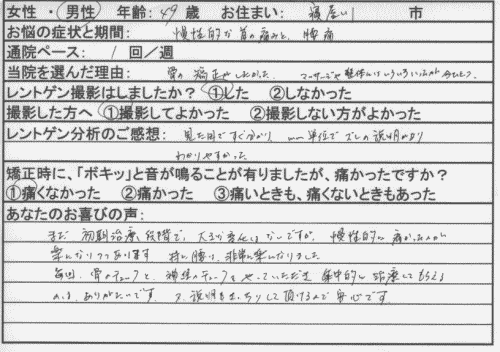 女性 ・ 男性 年齢: 49 歳 お住まい: 寝屋川 市
お悩の症状と期間: 慢性的な首の痛みと、腰痛
通院ペース: 1 回/週
当院を選んだ理由: 骨の矯正をしたかった マッサージや整体には いろいろ
レントゲン撮影はしましたか? ①した ②しなかった
撮影した方へ ①撮影してよかった ②撮影しない方がよかった
レントゲン分析のご感想: 見た目ですぐ分かり mm単位でズレの説明があり
わかりやすかった
矯正時に、「ボキッ」と音が鳴ることが有りましたが、痛かったですか?
①痛くなかった ②痛かった ③痛いときも、痛くないときもあった
あなたのお喜びの声:
まだ 初期治療段階で、大きな変化はないですが、慢性的な痛かったのが
楽になりつつあります 特に腰は、非常に楽になりました
毎回、骨のチェックと、神経のチェックをやっていただき 集中的に治療してもらえる
のは、ありがたいです。 又、説明もきっちりして頂けるので安心です